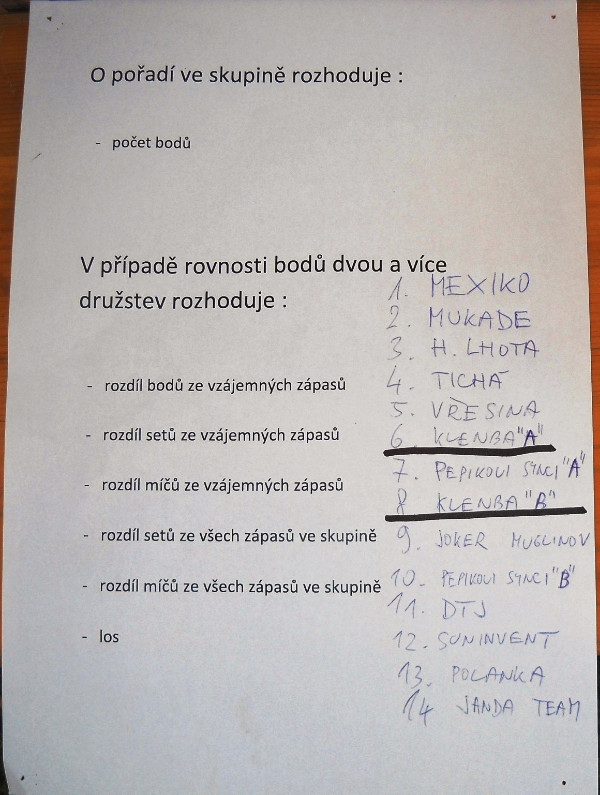 O pořadí ve skupině rozhoduje :
- počet bodů
V případě rovnosti bodů dvou a více
družstev rozhoduje :
- rozdíl bodů ze vzájemných zápasů
- rozdíl setů ze vzájemných zápasů
- rozdíl míčů ze vzájemných zápasů
- rozdíl setů ze všech zápasů ve skupině
- rozdíl míčů ze všech zápasů ve skupině
- los
1. MEXIKO
2. MUKADE
3. H. LHOTA
4. TICHÁ
5. VŘESINA
6. KLENBA "A"
7. PEPIKOVI SYNCI "A"
8 KLENBA "B"
9. JOKER MUGLINOV
10. PEPIKOVI SYNCI "B"
11. DTJ
12. SUNINVENT
13. POLANKA
14 JANDA TEAM